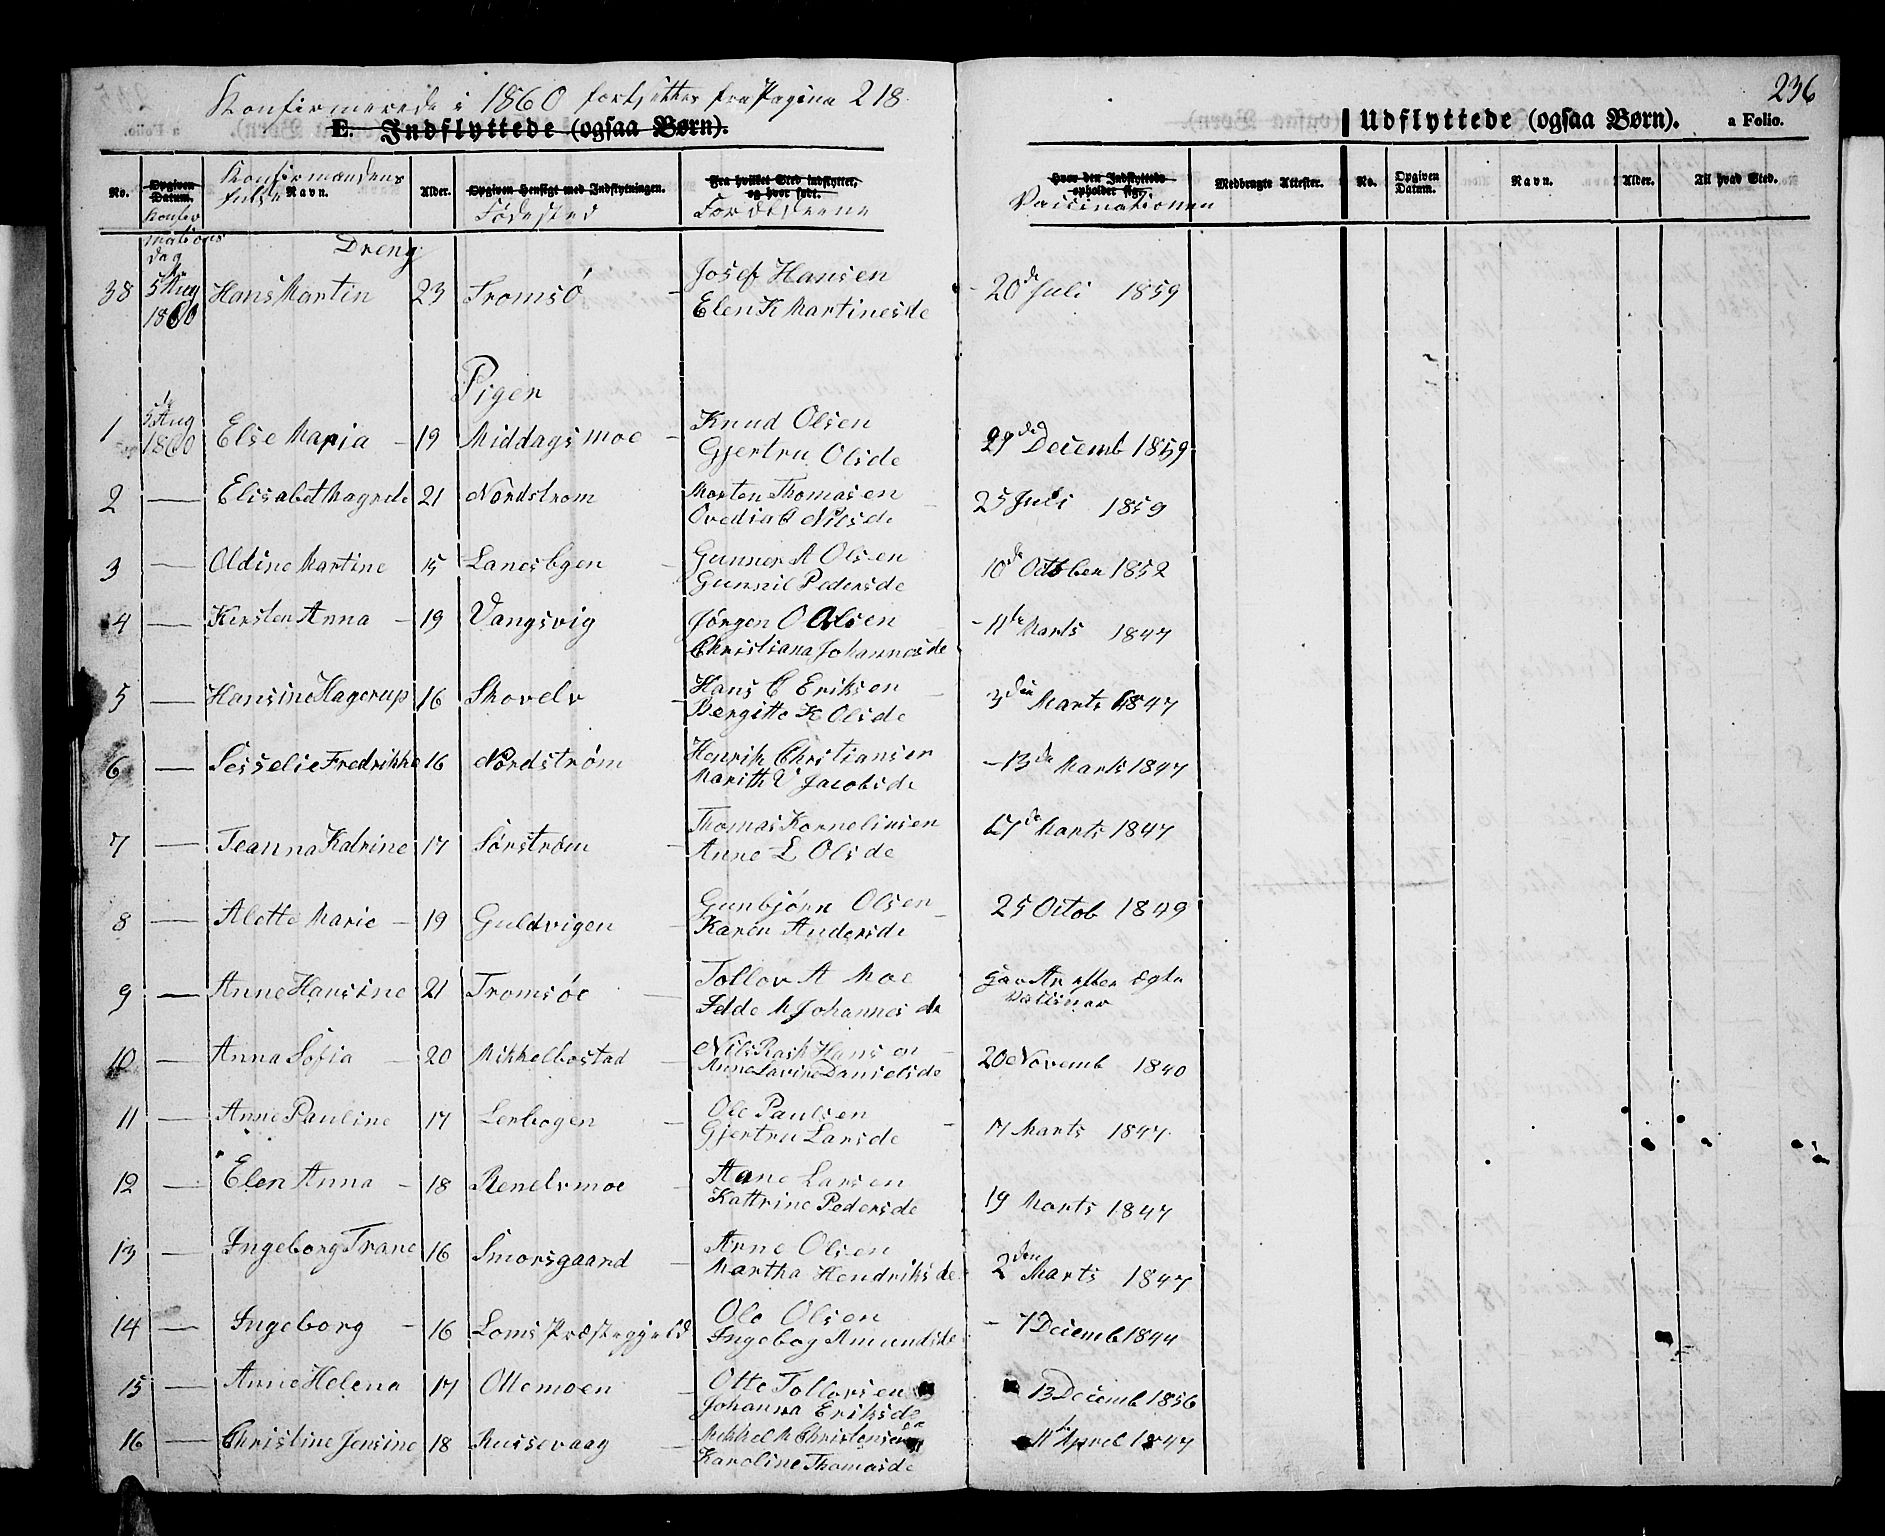 Konfirmerede i 1860 fortsettes fra Pagina 218
236
E. Indflyttede (ogsaa Børn).
Udflyttede (ogsaa Børn). a Folio.
No. Opgiven Datum. Konfirmandens fulde Navn. Alder. Opgiven Hensigt med Indflytningen. Fra hvilket Sted indflyttet, og hvor født. Hvor den Indflyttede opholder sig. Medbragte Attester. No. Opgiven Datum. Navn. Alder. Til hvad Sted.
Konfirmations dag Fødested Forældrene Vaccinationen
Dreng
38 5te Aug 1860 Hans Martin 23 Tromsö Josef Hansen - 20de Juli 1859
Elen K Martinesde
Pigen
1 5te Aug 1860 Else Maria - 19 Middagsmoe - Knud Olsen 29de Decemb 1859
Gjertru Olsde
2 — Elisabet Magrete 21 Nordstrom Morten Thomasen 25 Juli 1859
Ovedia C Nilsde
3 — Oldine Martine 15 Lanesbgen - Gunner A Olsen 10de October 1852
Gunnil Pedersde
4 — Kirsten Anna - 19 Vangsvig Jörgen O Olsen - 11te Marts 1847
Christiana Johannesde
5 — Hansine Hagerup 16 Skovelv - Hans C Eriksen 3den Marts 1847
Bergitte K Olsde
6 — Sesselie Fredrikke 16 Nordström Henrik Christiansen - 13de Marts 1847
Marith V Jacobsde
7 — Jeanna Katrine 17 Sörström - Thomas Kornelinsen 17de Marts 1847
Anne L Olsde
8 — Alette Marie - 19 Guldvigen - Gunbjörn Olsen - 25 Octob 1849
Karen Andersde
9 — Anne Hansine 21 Tromsöe - Tollov A Moe
M Johannesde
10 — Anna Sofia - 20 Mikkelbostad - Nils Rask Hansen - 20 Novemb 1840
Anne Lavine Danielsde
11 — Anne Pauline 17 Lerbogen - Ole Paulsen - 17 Marts 1847
Gjertru Larsde
12 — Elen Anna - 18 Renelvmoe - Aane Larsen 19 Marts 1847
Kattrine Pedersde
13 — Ingeborg Trane 16 Smorsgaard - Arne Olsen 2den Marts 1847
Martha Hendriksde
14 — Ingeborg - 16 Loms Præstegjeld Ole Olsen - 7 Decemb 1844
Ingebog Amundsde
15 — Anne Helena 17 Ottemoen - Otte Tollovsen 13 Decemb 1856
Johanna Eriksde
16 — Christine Jensine 18 Russevaag - Mikkel M Christensen 11te April 1847
Karoline Thomasde